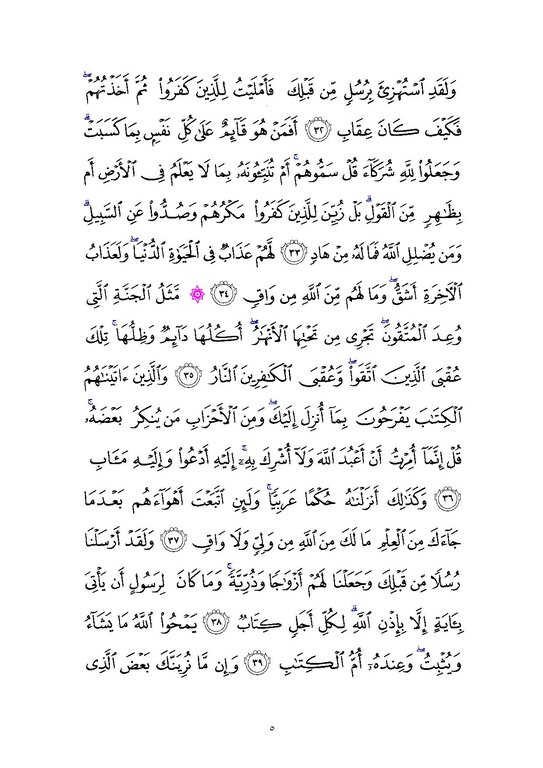 وَلَقَدِ ٱسْتُهْزِئَ بِرُسُلٍ مِّن قَبْلِكَ فَأَمْلَيْتُ لِلَّذِينَ كَفَرُوا۟ ثُمَّ أَخَذْتُهُمْ ۖ
فَكَيْفَ كَانَ عِقَابِ ﴿٣٢﴾ أَفَمَنْ هُوَ قَآئِمٌ عَلَىٰ كُلِّ نَفْسٍۭ بِمَا كَسَبَتْ ۗ
وَجَعَلُوا۟ لِلَّهِ شُرَكَآءَ قُلْ سَمُّوهُمْ ۚ أَمْ تُنَبِّـُٔونَهُۥ بِمَا لَا يَعْلَمُ فِى ٱلْأَرْضِ أَم
بِظَـٰهِرٍ مِّنَ ٱلْقَوْلِ ۗ بَلْ زُيِّنَ لِلَّذِينَ كَفَرُوا۟ مَكْرُهُمْ وَصُدُّوا۟ عَنِ ٱلسَّبِيلِ ۗ
وَمَن يُضْلِلِ ٱللَّهُ فَمَا لَهُۥ مِنْ هَادٍ ﴿٣٣﴾ لَّهُمْ عَذَابٌ فِى ٱلْحَيَوٰةِ ٱلدُّنْيَا ۖ وَلَعَذَابُ
ٱلْـَٔاخِرَةِ أَشَقُّ ۖ وَمَا لَهُم مِّنَ ٱللَّهِ مِن وَاقٍ ﴿٣٤﴾ ۞ مَّثَلُ ٱلْجَنَّةِ ٱلَّتِى
وُعِدَ ٱلْمُتَّقُونَ ۖ تَجْرِى مِن تَحْتِهَا ٱلْأَنْهَـٰرُ ۖ أُكُلُهَا دَآئِمٌ وَظِلُّهَا ۚ تِلْكَ
عُقْبَى ٱلَّذِينَ ٱتَّقَوا۟ ۖ وَّعُقْبَى ٱلْكَـٰفِرِينَ ٱلنَّارُ ﴿٣٥﴾ وَٱلَّذِينَ ءَاتَيْنَـٰهُمُ
ٱلْكِتَـٰبَ يَفْرَحُونَ بِمَآ أُنزِلَ إِلَيْكَ ۖ وَمِنَ ٱلْأَحْزَابِ مَن يُنكِرُ بَعْضَهُۥ ۚ
قُلْ إِنَّمَآ أُمِرْتُ أَنْ أَعْبُدَ ٱللَّهَ وَلَآ أُشْرِكَ بِهِۦٓ ۚ إِلَيْهِ أَدْعُوا۟ وَإِلَيْهِ مَـَٔابِ
﴿٣٦﴾ وَكَذَٰلِكَ أَنزَلْنَـٰهُ حُكْمًا عَرَبِيًّا ۚ وَلَئِنِ ٱتَّبَعْتَ أَهْوَآءَهُم بَعْدَمَا
جَآءَكَ مِنَ ٱلْعِلْمِ مَا لَكَ مِنَ ٱللَّهِ مِن وَلِىٍّ وَلَا وَاقٍ ﴿٣٧﴾ وَلَقَدْ أَرْسَلْنَا
رُسُلًا مِّن قَبْلِكَ وَجَعَلْنَا لَهُمْ أَزْوَٰجًا وَذُرِّيَّةً ۚ وَمَا كَانَ لِرَسُولٍ أَن يَأْتِىَ
بِـَٔايَةٍ إِلَّا بِإِذْنِ ٱللَّهِ ۗ لِكُلِّ أَجَلٍ كِتَابٌ ﴿٣٨﴾ يَمْحُوا۟ ٱللَّهُ مَا يَشَآءُ
وَيُثْبِتُ ۖ وَعِندَهُۥٓ أُمُّ ٱلْكِتَـٰبِ ﴿٣٩﴾ وَإِن مَّا نُرِيَنَّكَ بَعْضَ ٱلَّذِى
٥